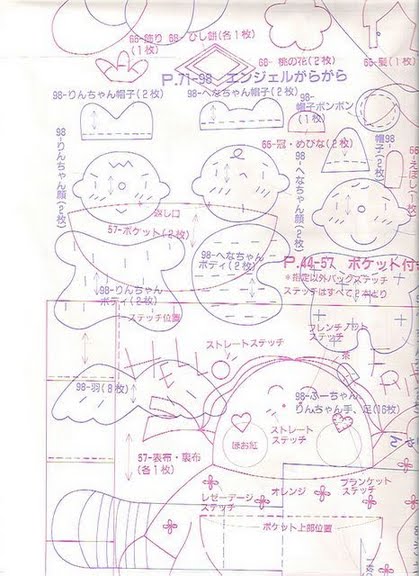 66-飾り
(1枚)
66-ひし餅(各1枚)
66-桃の花(2枚)
66-髪(1枚)
P.71-98 エンジェルがらがら
98-りんちゃん帽子(2枚)
98-へなちゃん帽子(2枚)
98-
帽子ポンポン
(1枚)
66-冠・めびな(2枚)
98-りんちゃん顔(2枚)
98-へなちゃん顔(2枚)
返し口
57-ポケット(2枚)
98-りんちゃん
ボディ(2枚)
98-へなちゃん
ボディ(2枚)
P.44-57 ポケット付
*指定以外バックステッチ
ステッチはすべて2本どり
ステッチ位置
ストレートステッチ
フレンチノット
ステッチ
茶
98-羽(8枚)
98-ふーちゃん、
りんちゃん手、足(16枚)
ほお紅
ストレート
ステッチ
57-表布・裏布
(各1枚)
レゼーデージー
ステッチ
オレンジ
ブランケット
ステッチ
ポケット上部位置